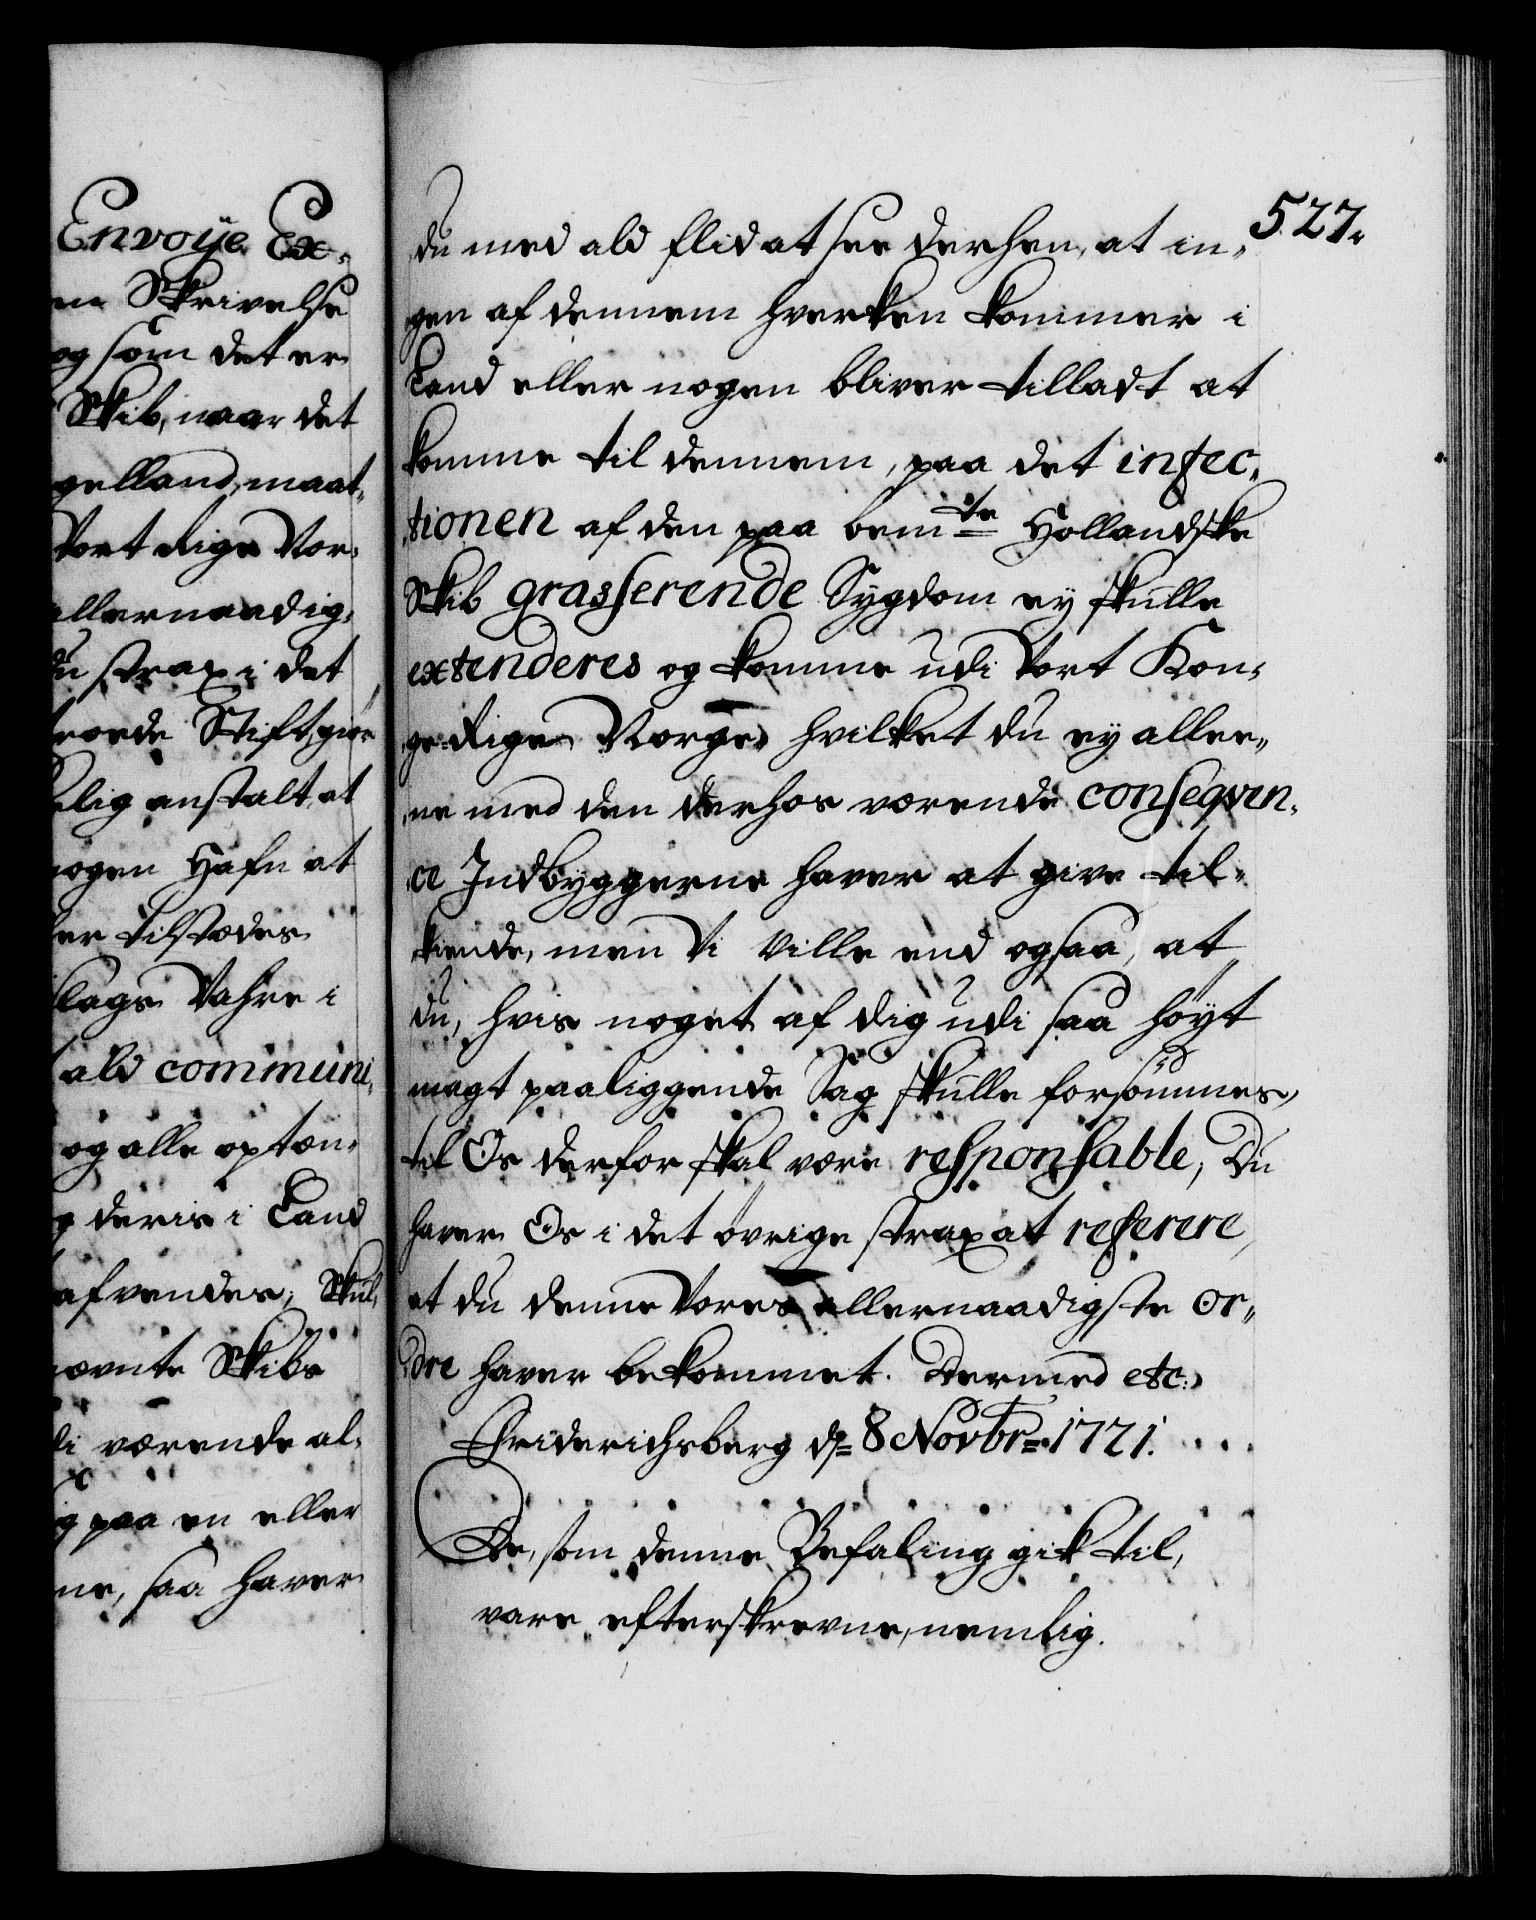 Envoÿe Ex-
ne Skrivelse
og som det er
Skib, naar det
gelland, maat-
Vort Rige Nor-
allernaadig-
du strax i det
troede Stift, giør
delig anstalt, at
nogen Hafn at
ler tilstædes
slags Vahre i
ald communi-
og alle optæn-
g deris i Land
afvendes; Skul-
nævnte Skibs
di værende al-
g paa en eller
ne, saa haver
527.
du med ald flid at see derhen, at in-
gen af dennem hverken kommer i
Land eller nogen bliver tilladt at
komme til dennem, paa det infec-
tionen af den paa bemte Hollandske
Skib grasserende Sygdom ey skulle
extenderes og komme udi Vort Kon-
ge-Rige Norge, hvilket du ey alle-
ne med den derhos værende conseqven-
ce Indbyggerne haver at give til-
kiende, men Vi Ville end ogsaa, at
du, hvis noget af dig udi saa høyt
magt paaliggende Sag skulle forsømmes,
til Os derfor skal være responsable, Du
haver Os i det øvrige strax at referere,
at du denne Vores allernaadigste or-
dre haver bekommet. Dermed etc:
Friderichsberg d. 8 Novbr. 1721.
De, som denne Befaling gik til,
vare efterskrevne, nemlig.